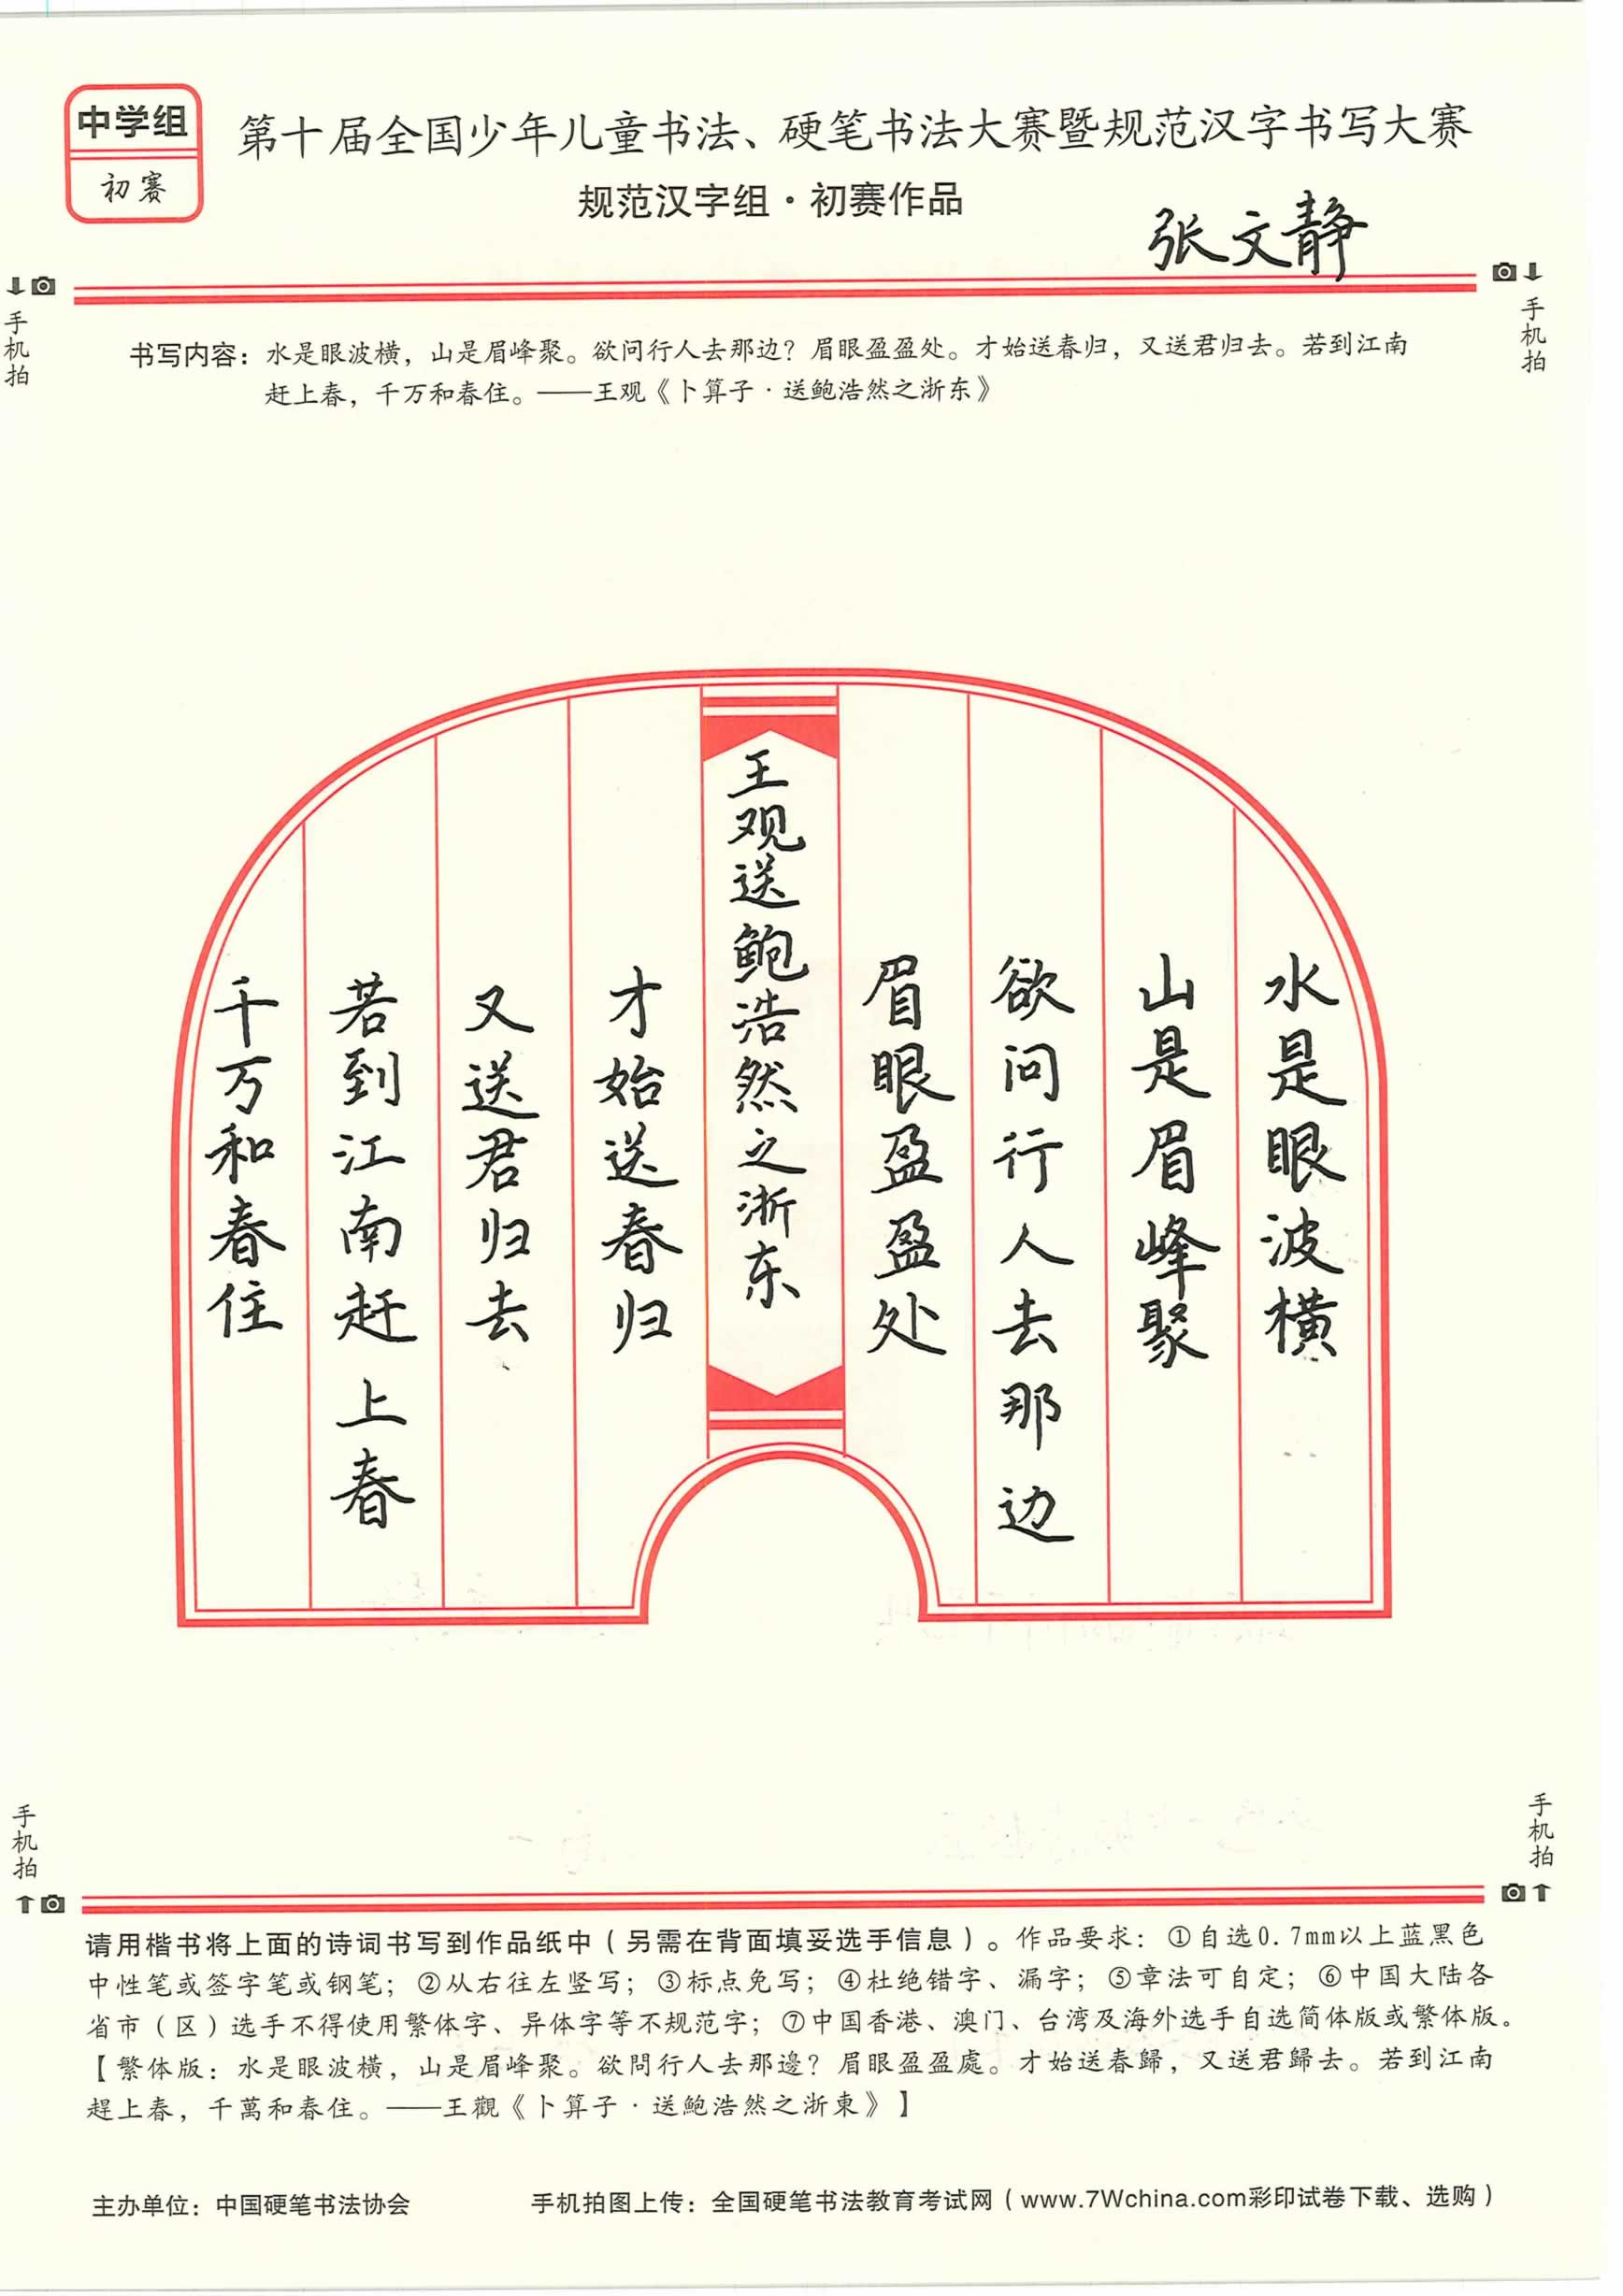 中学组
初赛
第十届全国少年儿童书法、硬笔书法大赛暨规范汉字书写大赛
规范汉字组·初赛作品
张文静
手机拍
手机拍
书写内容：水是眼波横，山是眉峰聚。欲问行人去那边？眉眼盈盈处。才始送春归，又送君归去。若到江南
赶上春，千万和春住。——王观《卜算子·送鲍浩然之浙东》
水是眼波横
山是眉峰聚
欲问行人去那边
眉眼盈盈处
王观送鲍浩然之浙东
才始送春归
又送君归去
若到江南赶上春
千万和春住
手机拍
手机拍
请用楷书将上面的诗词书写到作品纸中（另需在背面填妥选手信息）。作品要求：①自选0.7mm以上蓝黑色
中性笔或签字笔或钢笔；②从右往左竖写；③标点免写；④杜绝错字、漏字；⑤章法可自定；⑥中国大陆各
省市（区）选手不得使用繁体字、异体字等不规范字；⑦中国香港、澳门、台湾及海外选手自选简体版或繁体版。
【繁体版：水是眼波横，山是眉峰聚。欲問行人去那邊？眉眼盈盈處。才始送春歸，又送君歸去。若到江南
趕上春，千萬和春住。——王觀《卜算子·送鮑浩然之浙東》】
主办单位：中国硬笔书法协会
手机拍图上传：全国硬笔书法教育考试网（www.7Wchina.com彩印试卷下载、选购）